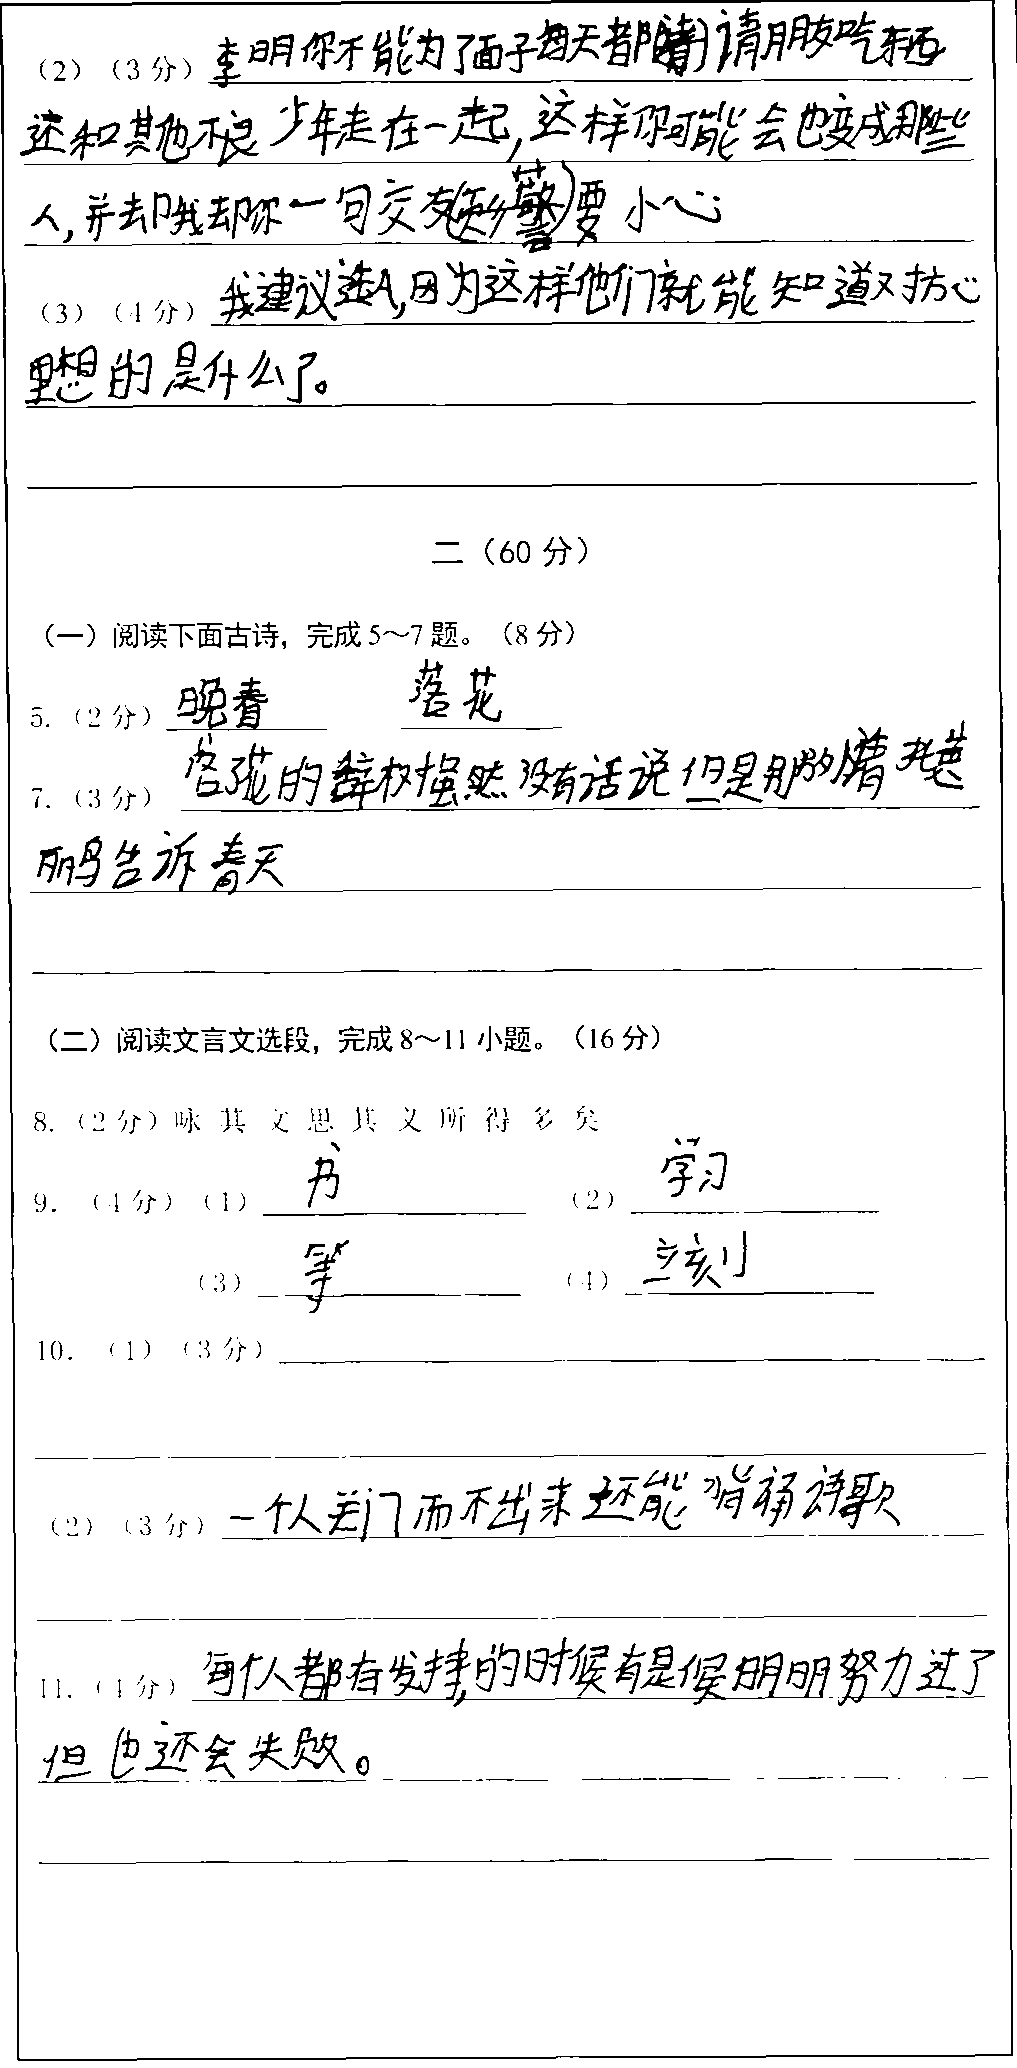 （2）（3分）李明你不能为了面子每天都请朋友吃东西
还和其他不良少年走在一起，这样你可能会也变成那些
人，并去卩我去卩你一句交友要小心
（3）（4分）我建议选A，因为这样他们就能知道对方心
里想的是什么了。
二（60分）
（一）阅读下面古诗，完成5～7题。（8分）
5.（2分）晚春 落花
7.（3分）落花的辞权虽然没有话说但是那
告诉春天
（二）阅读文言文选段，完成8～11小题。（16分）
8.（2分）咏其文思其义所得多矣
9.（4分）（1）书 （2）学习
（3）等 （4）立刻
10.（1）（3分）
（2）（3分）一个人关门而不出来还能背诵诗歌
11.（4分）每个人都有发挥的时候有是候明明努力过了
但也还会失败。